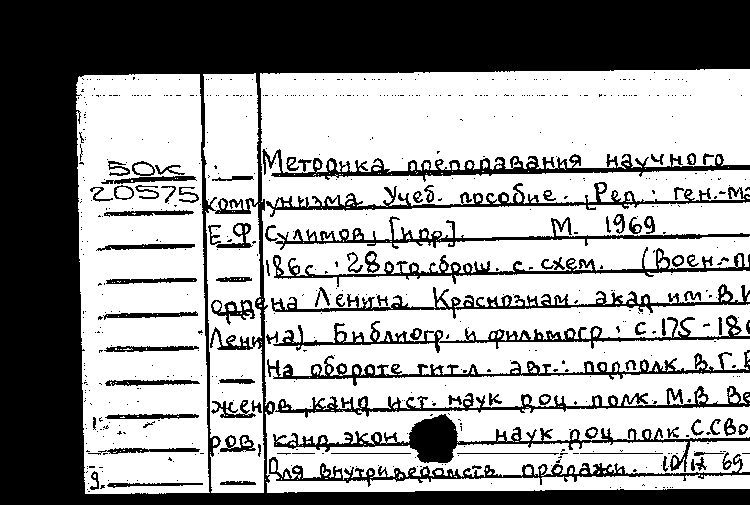 50к Методика преподавания научного
20575 коммунизма. Учеб. пособие. [Ред.: ген.-ма
Е.Ф. Сулимов, [и др.]. М., 1969.
186с.; 28 отд. сброш. с. схем. (Воен.-п
ордена Ленина Краснознам. акад. им. В.И
Ленина). Библиогр. и фильмогр.: с.175-186
На обороте тит.л. авт.: подполк. В.Г.
женов, канд. ист. наук доц. полк. М.В. Ве
ров, канд. экон. наук доц. полк. С.С.
9. Для внутриведомств. продажи. 10/IX 69